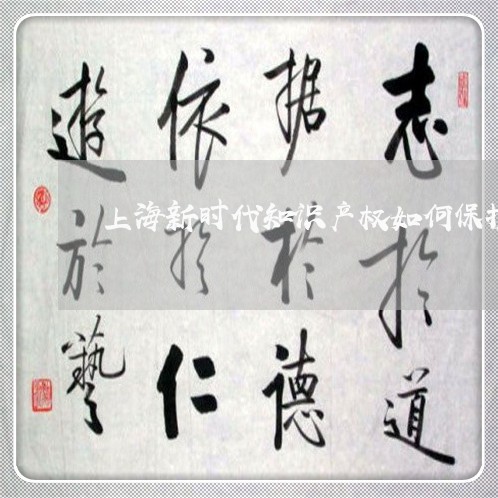 志於道
据於德
依於仁
遊於藝
上海新时代知识产权如何保